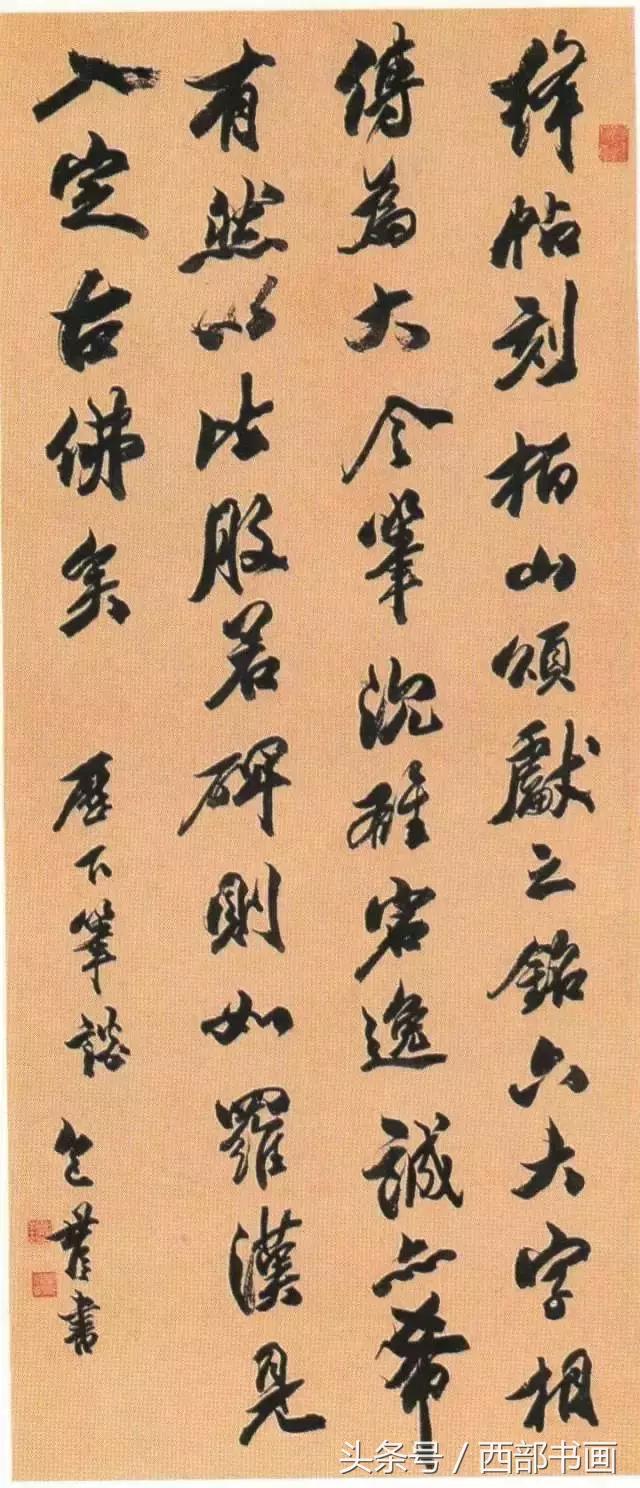 绛帖刻柏山頌獻之銘六大字相
傳為大令筆沉雄宕逸誠亦希
有然以此般若碑則如羅漢見
入定古佛矣
歷下筆談 包世臣書
头条号 / 西部书画